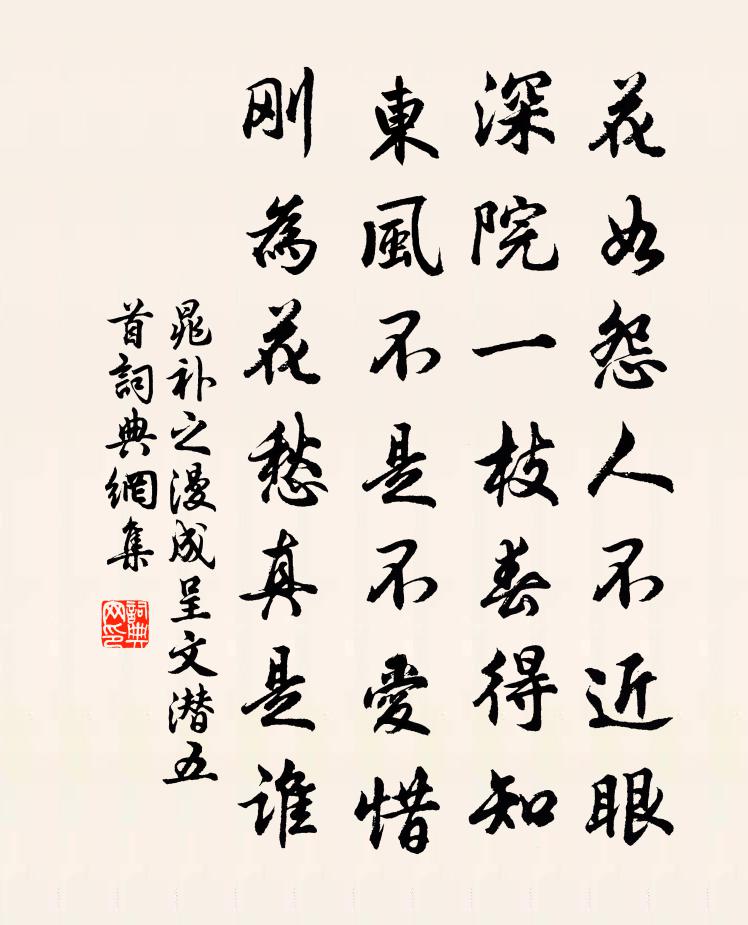 花如怨人不近眼
深院一枝春得知
東風不是不愛惜
刚為花愁真是谁
晁补之漫成呈文潜五
首詞典網集
詞典
网印